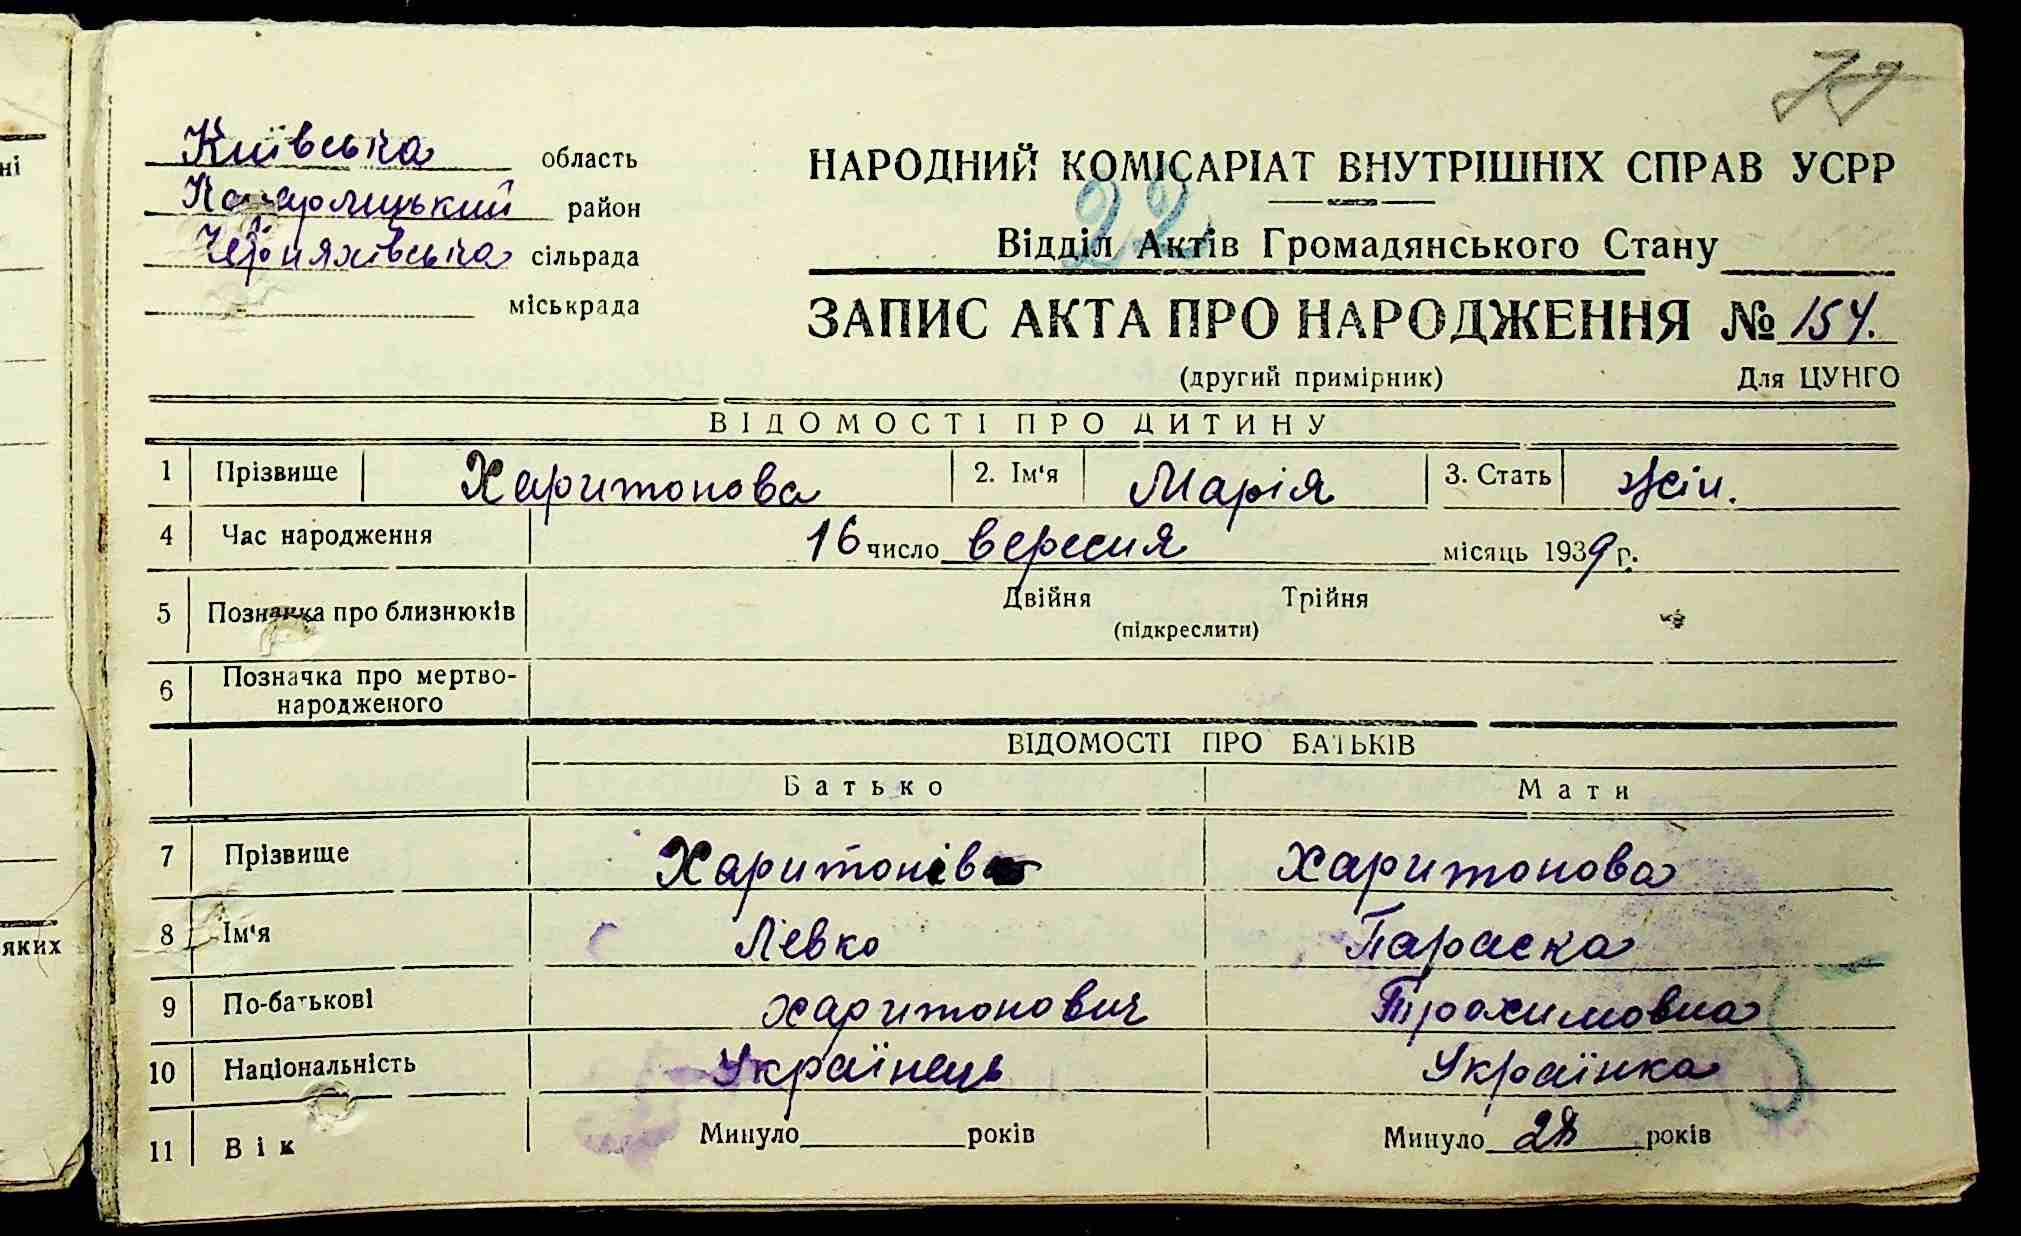 Київська область
Кагарлицький район
Черняхівська сільрада
міськрада
НАРОДНИЙ КОМІСАРІАТ ВНУТРІШНІХ СПРАВ УСРР
22
Відділ Актів Громадянського Стану
ЗАПИС АКТА ПРО НАРОДЖЕННЯ № 154.
(другий примірник) Для ЦУНГО
ВІДОМОСТІ ПРО ДИТИНУ
1 Прізвище Харитонова 2. Ім'я Марія 3. Стать жін.
4 Час народження 16 число вересня місяць 1939 р.
5 Познанка про близнюків Двійня Трійня
(підкреслити)
6 Позначка про мертво-
народженого
ВІДОМОСТІ ПРО БАТЬКІВ
Батько Мати
7 Прізвище Харитонів Харитонова
8 Ім'я Левко Параска
9 По-батькові Харитонович Трохимовна
10 Національність Українець Українка
11 Вік Минуло роківМинуло 28 років
ні
яких